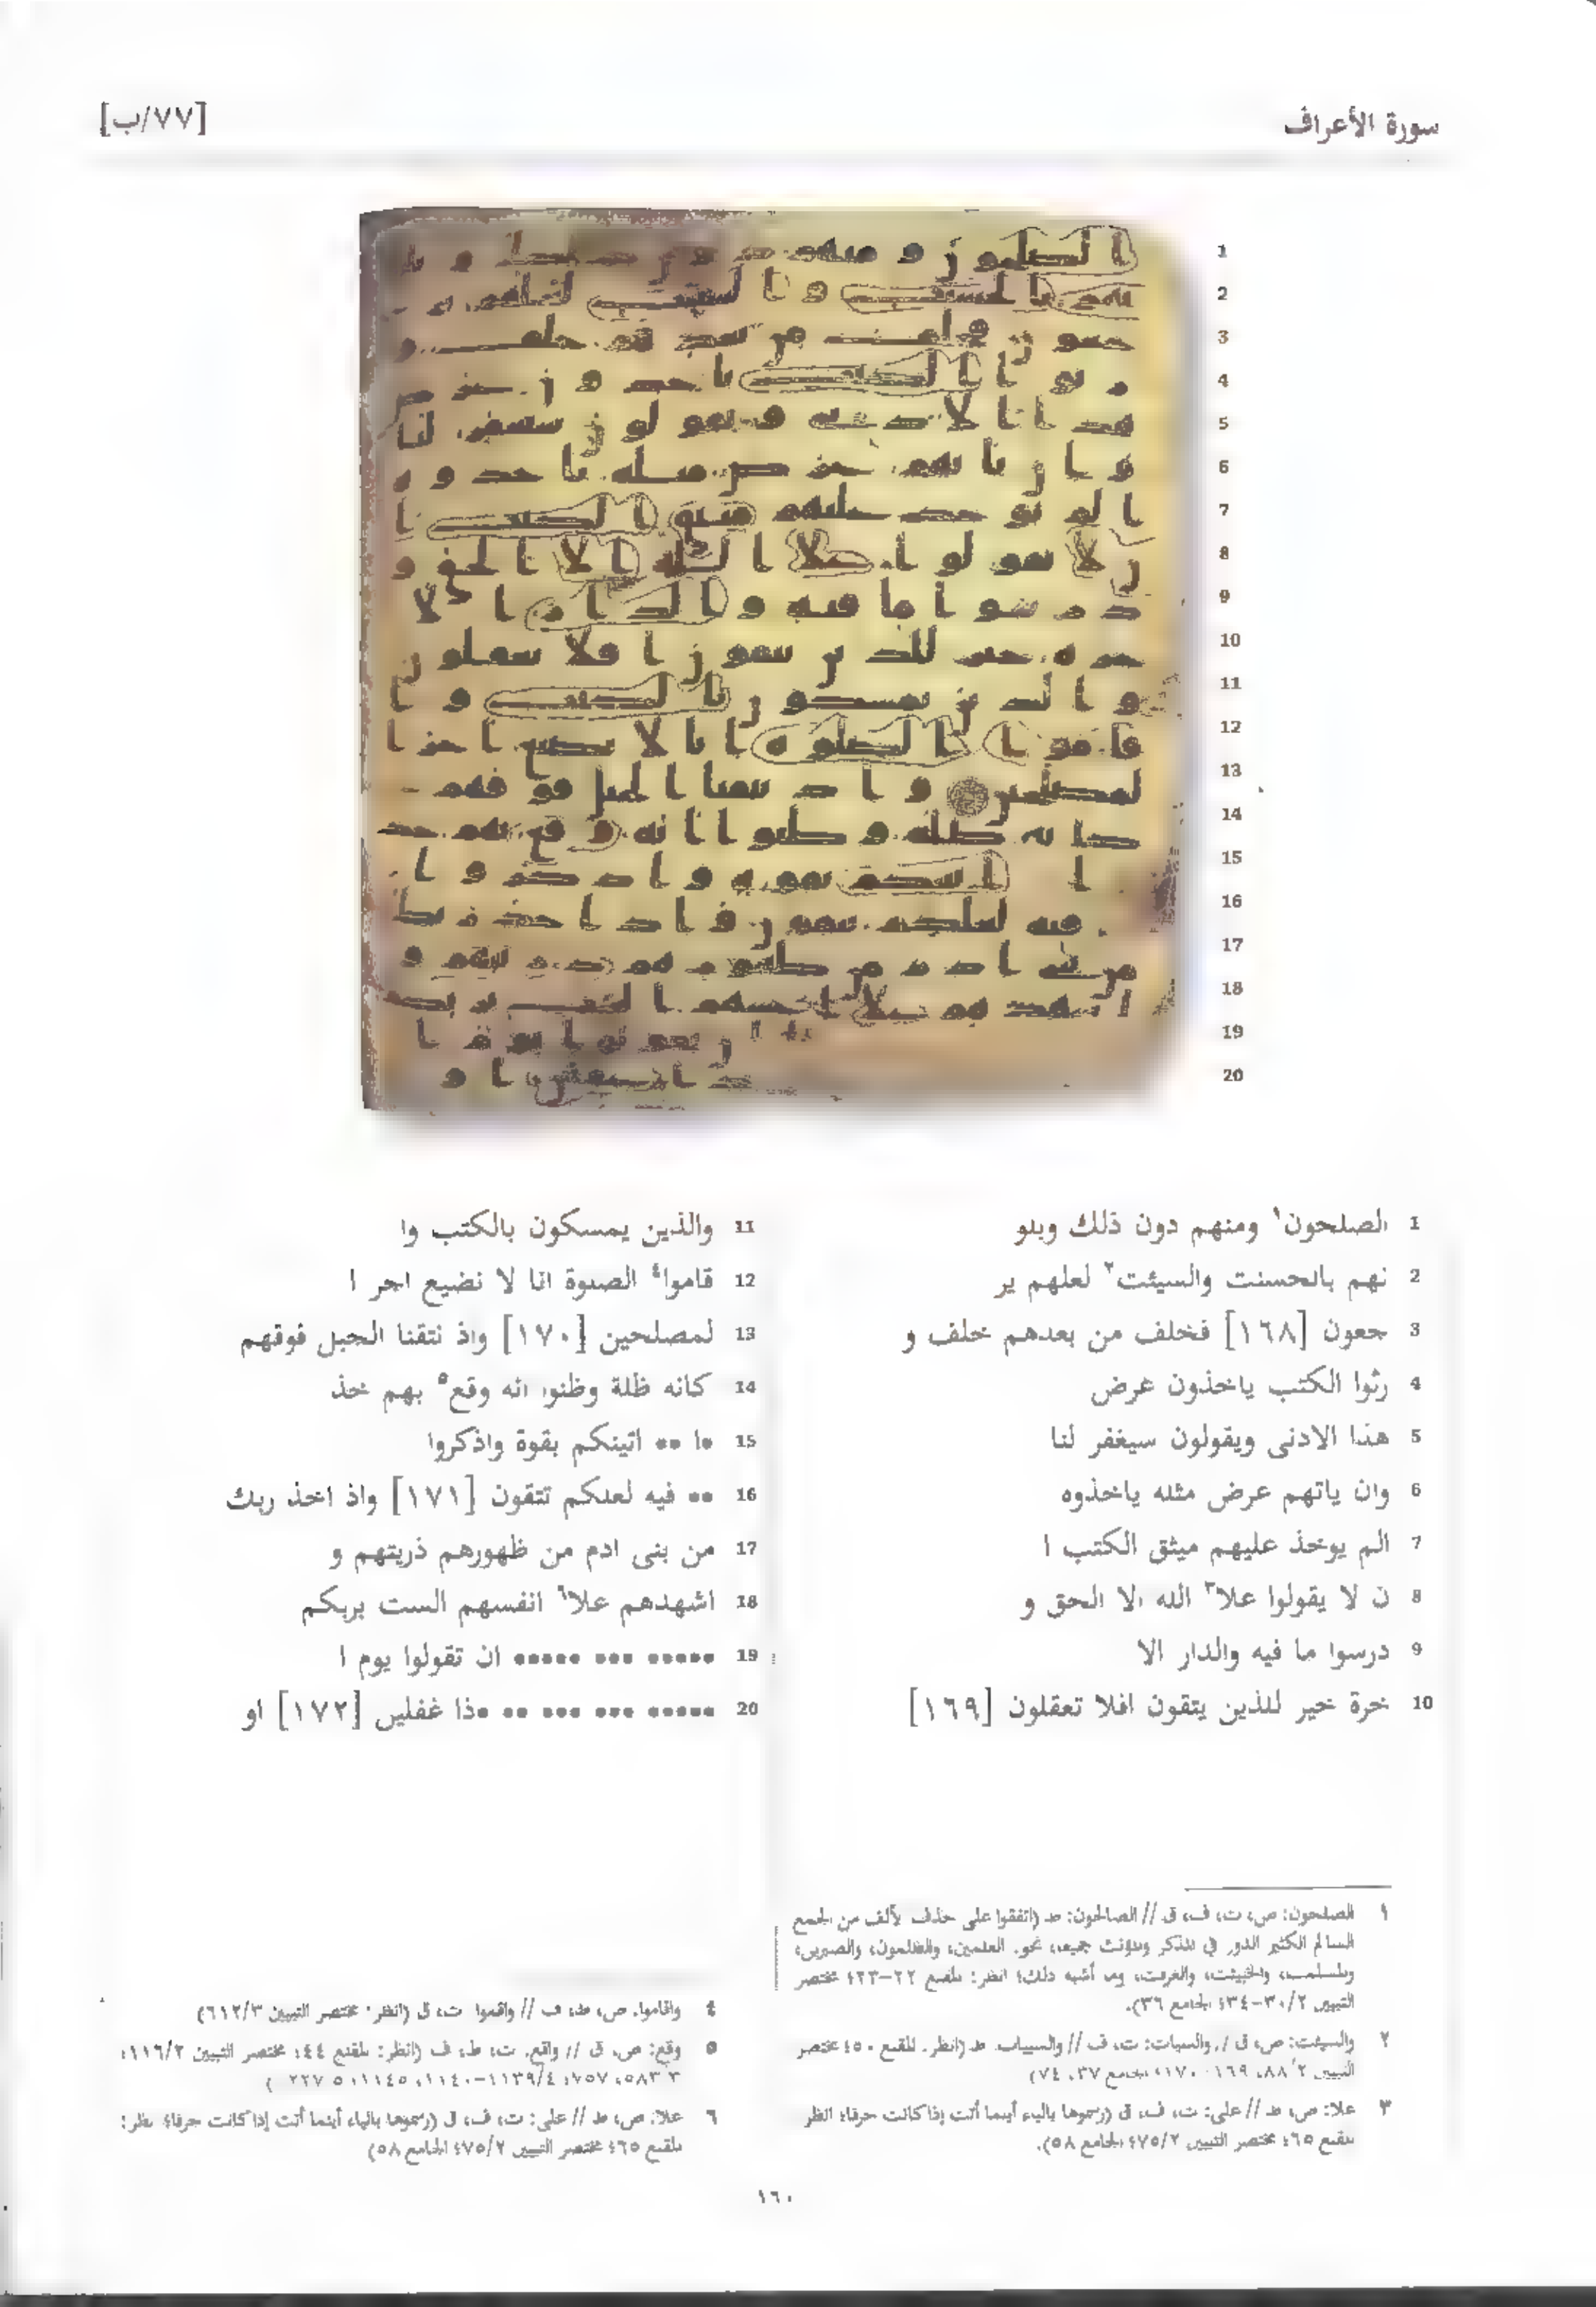 سورة الأعراف
[٧٧/ب]
1 الصلحون١ ومنهم دون ذلك وبلو
2 نهم بالحسنت والسيئت٢ لعلهم ير
3 جعون [١٦٨] فخلف من بعدهم خلف و
4 رثوا الكتب ياخذون عرض
5 هذا الادنى ويقولون سيغفر لنا
6 وان ياتهم عرض مثله ياخذوه
7 الم يوخذ عليهم ميثق الكتب ا
8 ن لا يقولوا علا٣ الله الا الحق و
9 درسوا ما فيه والدار الا
10 خرة خير للذين يتقون افلا تعقلون [١٦٩]
11 والذين يمسكون بالكتب وا
12 قاموا٤ الصلوة انا لا نضيع اجر ا
13 لمصلحين [١٧٠] واذ نتقنا الجبل فوقهم
14 كانه ظلة وظنوا انه وقع٥ بهم خذ
15 •ا •• اتينكم بقوة واذكروا
16 •• فيه لعلكم تتقون [١٧١] واذ اخذ ربك
17 من بنى ادم من ظهورهم ذريتهم و
18 اشهدهم علا٦ انفسهم الست بربكم
19 ••••• ••• ••••• ان تقولوا يوم ا
20 ••••• ••• ••• •• •ذا غفلين [١٧٢] او
١ الصلحون: ص، ت، ف، ق // الصالحون: ط (اتفقوا على حذف الألف من الجمع
السالم الكثير الدور في المذكر والمؤنث جميعا، نحو: العلمين، والظلمون، والصبرين،
والمسلمت، والخبيثت، والغرفت، وما أشبه ذلك؛ انظر: المقنع ٢٢-٢٣؛ مختصر
التبيين ٣٠/٢-٣٤؛ الجامع ٣٦).
٢ والسيئت: ص، ق // والسيات: ت، ف // والسييات: ط (انظر: المقنع ٥٠؛ مختصر
التبيين ٨٨/٢، ١٦٩-١٧٠؛ الجامع ٣٧، ٧٤)
٣ علا: ص، ط // على: ت، ف، ق (رسموها بالياء أينما أتت إذا كانت حرفا؛ انظر:
المقنع ٦٥؛ مختصر التبيين ٧٥/٢؛ الجامع ٥٨).
٤ واقاموا: ص، ط، ف // واقموا: ت، ق (انظر: مختصر التبيين ٦١٢/٣)
٥ وقع: ص، ق // واقع: ت، ط، ف (انظر: المقنع ٤٤؛ مختصر التبيين ١١٦/٢؛
٦ علا: ص، ط // على: ت، ف، ق (رسموها بالياء أينما أتت إذا كانت حرفا؛ انظر:
المقنع ٦٥؛ مختصر التبيين ٧٥/٢؛ الجامع ٥٨)
١٦٠